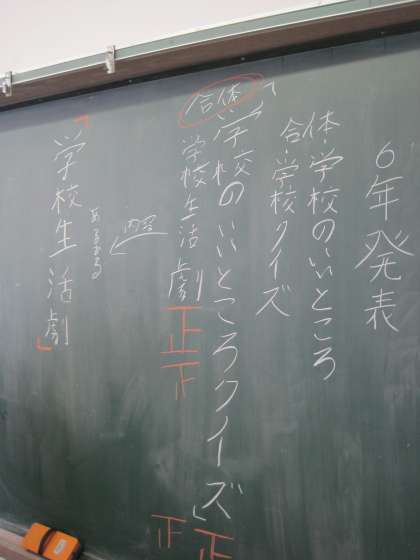 6年発表
体・学校のいいところ
合・学校クイズ
合体
「学校のいいところクイズ」正正
学校生活劇正下
内容
あるある
「学校生活劇」